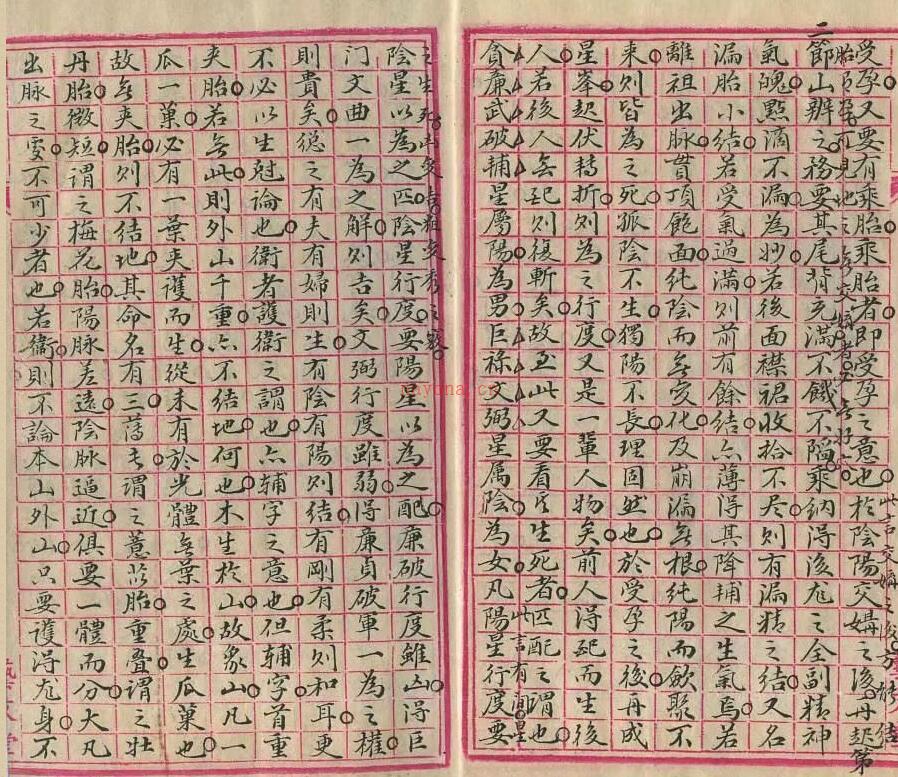 受孕又要有乘胎乘胎者即受孕之意也於陰陽交媾之後再起第
二節山辨之務要其尾背充滿不餓不陷乘納得後尨之全副精神
氣魄點滴不漏為妙若後面襟裙收拾不尽則有漏精之結又名
漏胎小結若受氣過滿則前有餘結亦薄得其降輔之生氣焉若
離祖出脉貫頂飽面純陰而無変化及崩漏無根純陽而歛聚不
来則皆為之死孤陰不生獨陽不長理固然也於受孕之後再成
星峯起伏轉折則為之行度又是一輩人物矣前人得起而生後
人若後人無起則復斬矣故至此又要看生死者匹配之謂也
貪廉武破輔星屬陽為男巨祿文弼星属陰為女凡陽星行度要
陰星以為之匹陰星行度要陽星以為之配廉破行度雖凶得巨
门文曲一為之解则吉矣文弼行度雖弱得廉貞破軍一為之權
則貴矣總之有夫有婦則生有陰有陽则結有剛有柔则和耳更
不必以生尅論也衛者護衛之謂也亦輔字之意也但輔字首重
夹胎若無此則外山千重亦不结地何也木生於山故象山凡一
瓜一菓必有一葉夹護而生從未有於光體無葉之處生瓜菓也
故無夹胎則不结地其命名有三薄者謂之薏苡胎重叠謂之壮
丹胎微短謂之梅花胎陽脉差遠陰脉逼近俱要一體而分大凡
出脉之処不可少者也若衞則不論本山外山只要護得尨身不